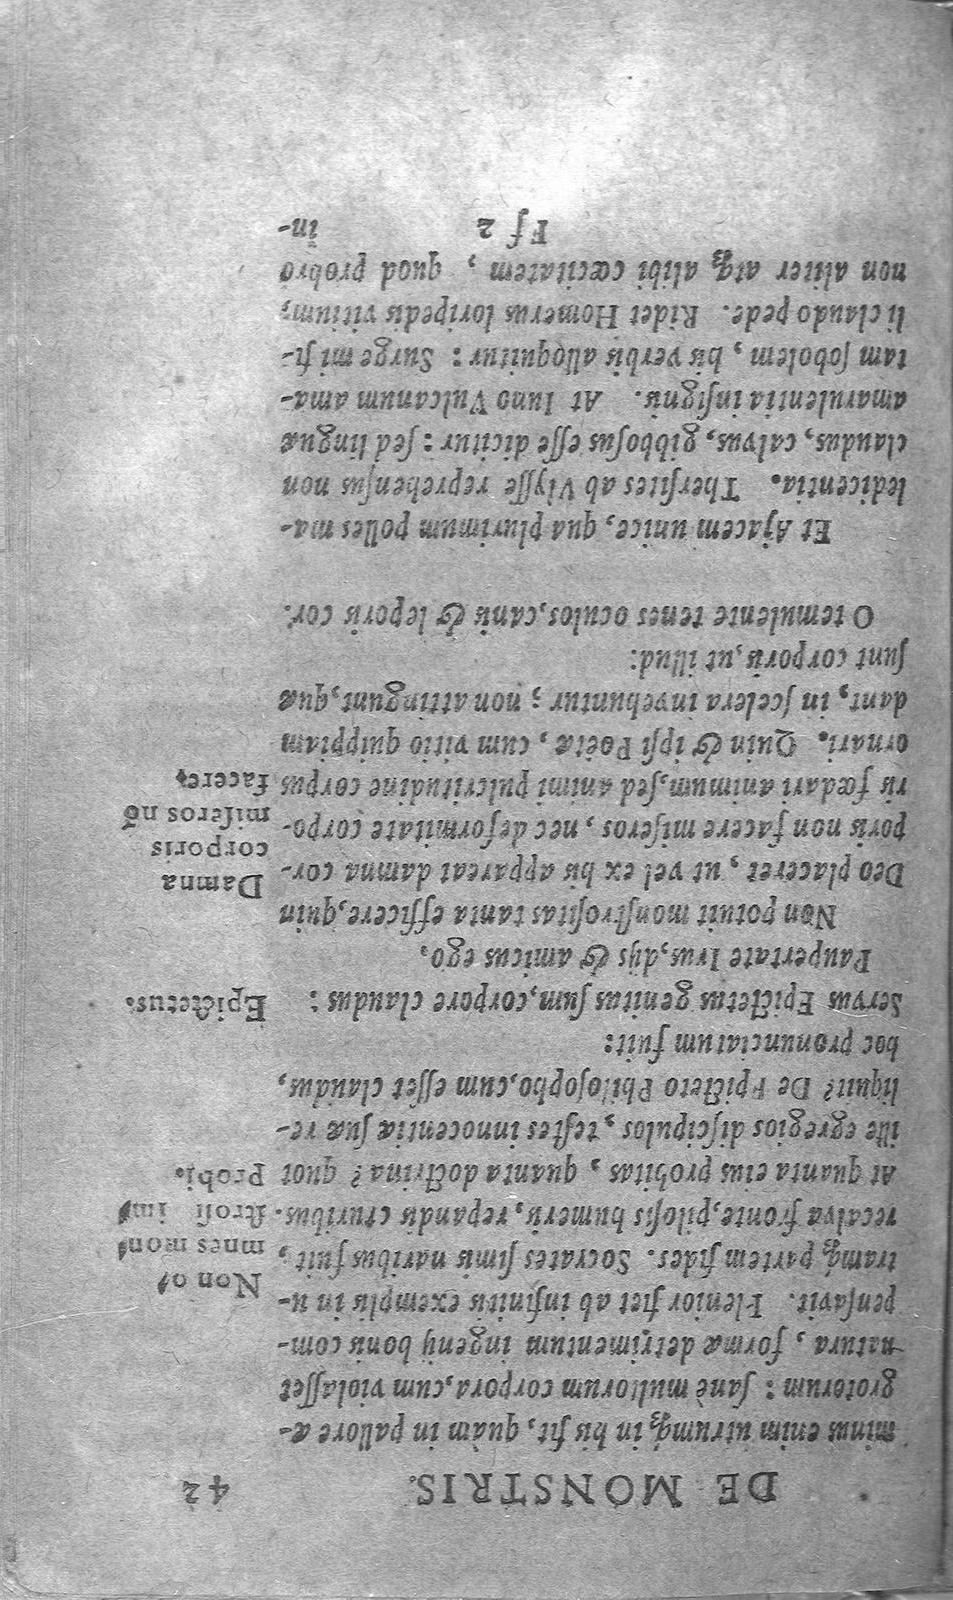 DE MONSTRIS. 42
minus enim utrumq́ꝫ in his sit, quàm in pallore æ-
grotorum: sanè multorum corpora, cum violasset
natura, formæ detrimentum ingenij bonis com-
pensavit. Plenior fiet ab infinitis exemplis in u-
tramq́ꝫ partem fides. Socrates simis naribus fuit,
recalva fronte, pilosis humeris, repandis cruribus.
At quanta eius probitas, quanta doctrina? quot
ille egregios discipulos, testes innocentiæ suæ re-
liquit? De Epicteto Philosopho, cum esset claudus,
hoc pronunciatum fuit:
Servus Epictetus genitus sum, corpore claudus:
Paupertate Irus, dijs & amicus ego.
Non potuit monstrositas tanta efficere, quin
Deo placeret, ut vel ex his appareat damna cor-
poris non facere miseros, nec deformitate corpo-
ris fœdari animum, sed animi pulcritudine corpus
ornari. Quin & ipsi Poëtæ, cum vitio quippiam
dant, in scelera invehuntur; non attingunt, quæ
sunt corporis, ut illud:
O temulente tenes oculos, canis & leporis cor.
Et Ajacem unice, qua plurimum polles ma-
ledicentia. Thersites ab Vlysse reprehensus non
claudus, calvus, gibbosus esse dicitur: sed linguæ
amarulentia insignis. At Iuno Vulcanum ama-
tam sobolem, his verbis alloquitur: Surge mi fi-
li claudo pede. Ridet Homerus loripedis vitium,
non aliter atqꝫ alibi cœcitatem, quod probro
Ff 2 in-
Non o-
mnes mon-
strosi im-
Probi.
Epictetus.
Damna
corporis
miseros nō
facere.